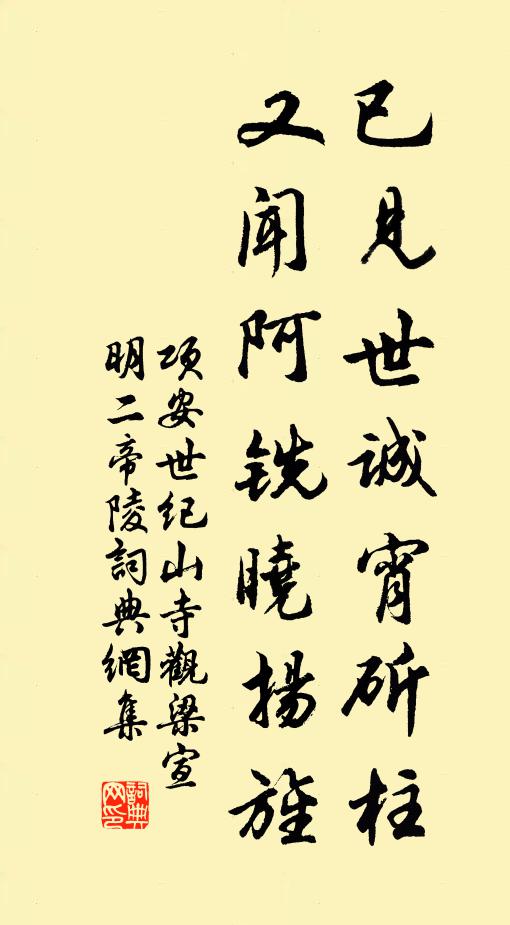 已見世誠宵斫柱
又聞阿銑曉揚旌
項安世紀山寺觀梁宣
明二帝陵詞典網集
詞典
网印